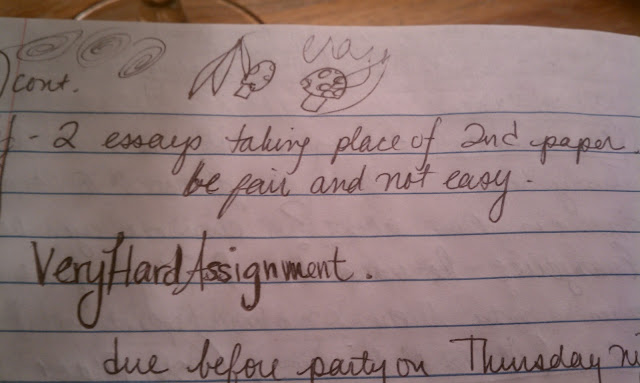 cont.
- 2 essays taking place of 2nd paper.
be fair and not easy.
VeryHardAssignment.
due before party on Thursday